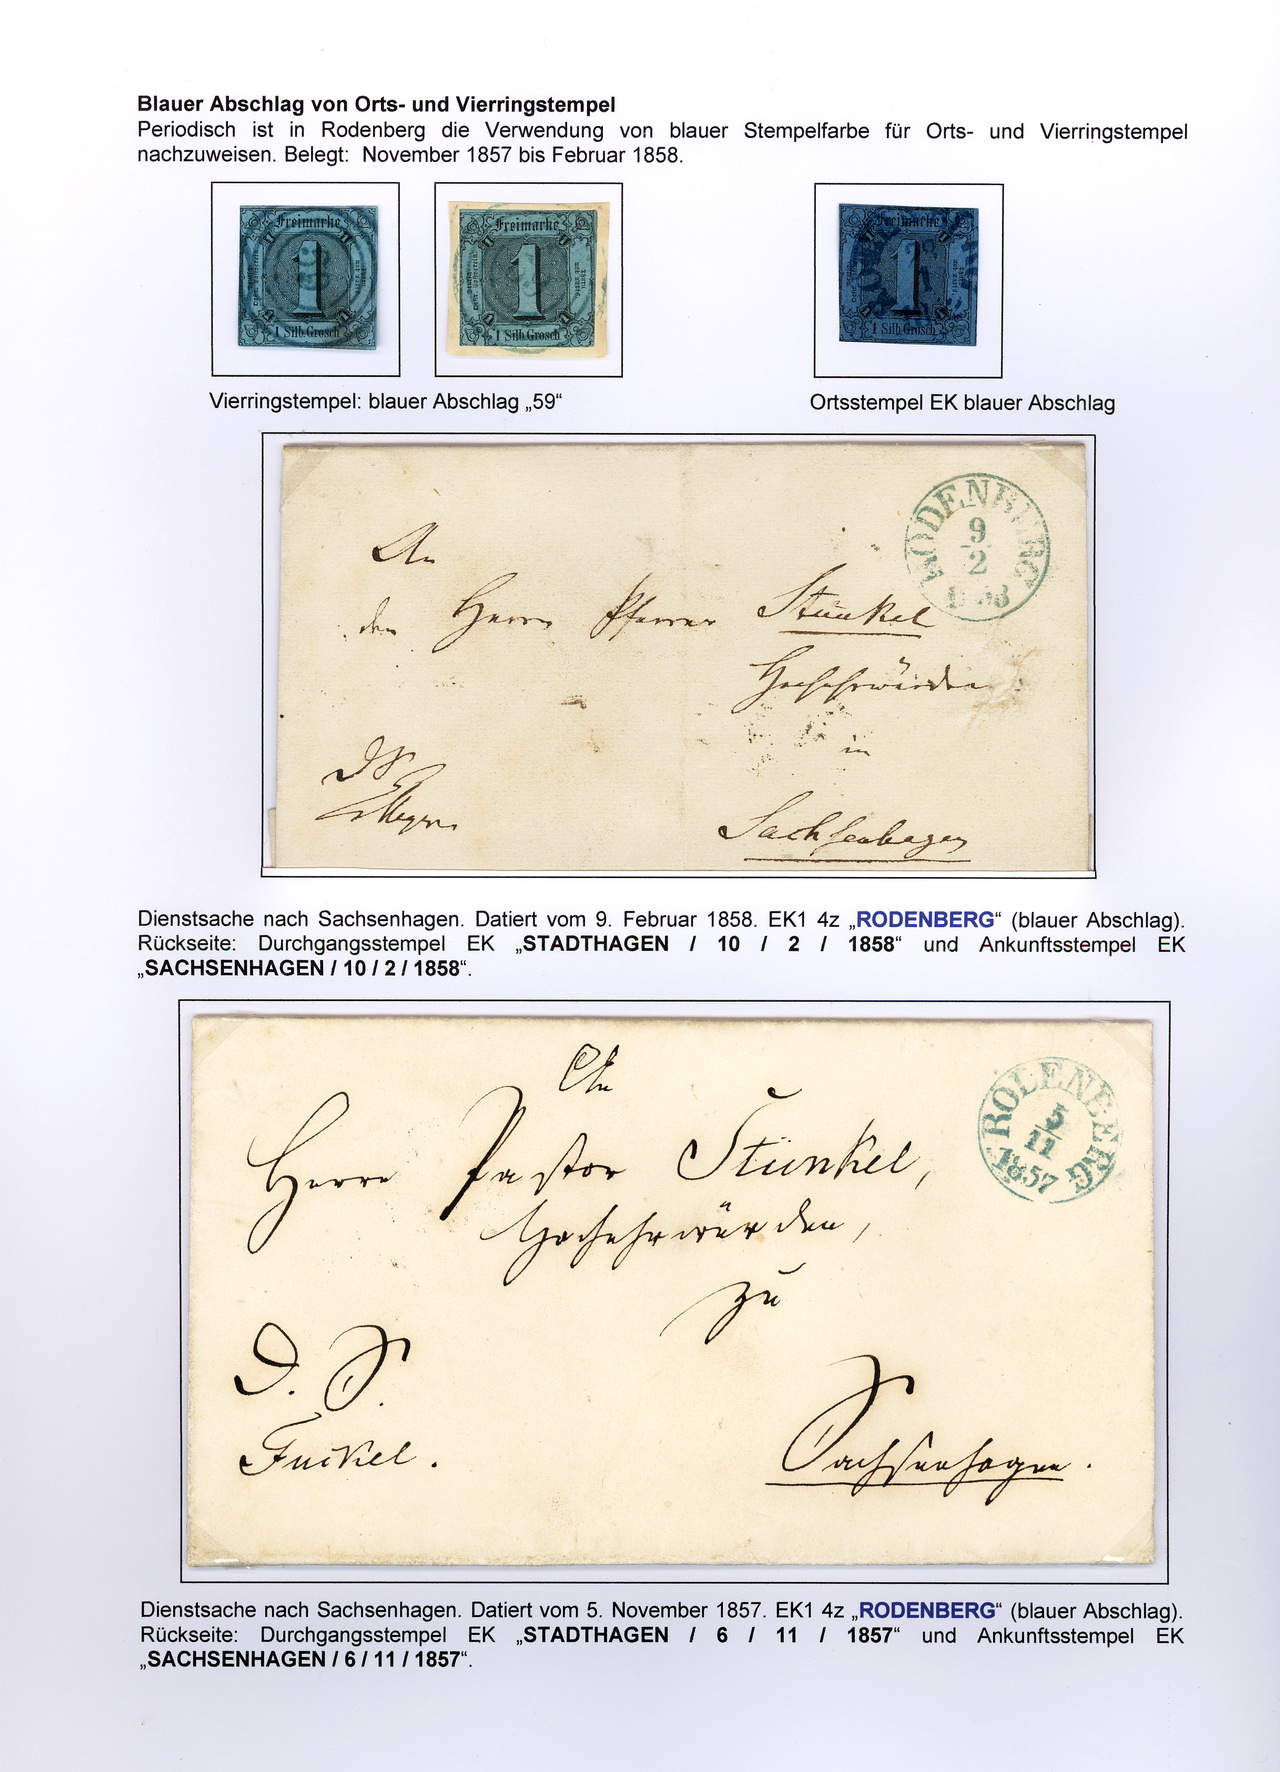 Blauer Abschlag von Orts- und Vierringstempel
Periodisch ist in Rodenberg die Verwendung von blauer Stempelfarbe für Orts- und Vierringstempel
nachzuweisen. Belegt: November 1857 bis Februar 1858.
Freimarke
1
1 Silb. Grosch
Freimarke
1
1 Silb. Grosch
Freimarke
1
1 Silb. Grosch
Vierringstempel: blauer Abschlag „59“
Ortsstempel EK blauer Abschlag
RODENBERG
9
2
An
den Herrn Pfarrer Stünkel
Hochehrwürden
in
D S
Sachsenhagen
Dienstsache nach Sachsenhagen. Datiert vom 9. Februar 1858. EK1 4z „RODENBERG“ (blauer Abschlag).
Rückseite: Durchgangsstempel EK „STADTHAGEN / 10 / 2 / 1858“ und Ankunftsstempel EK
„SACHSENHAGEN / 10 / 2 / 1858“.
An
RODENBERG
5
11
1857
Herrn Pastor Stünkel,
Hochehrwürden,
zu
D. S.
Sachsenhagen.
Dienstsache nach Sachsenhagen. Datiert vom 5. November 1857. EK1 4z „RODENBERG“ (blauer Abschlag).
Rückseite: Durchgangsstempel EK „STADTHAGEN / 6 / 11 / 1857“ und Ankunftsstempel EK
„SACHSENHAGEN / 6 / 11 / 1857“.